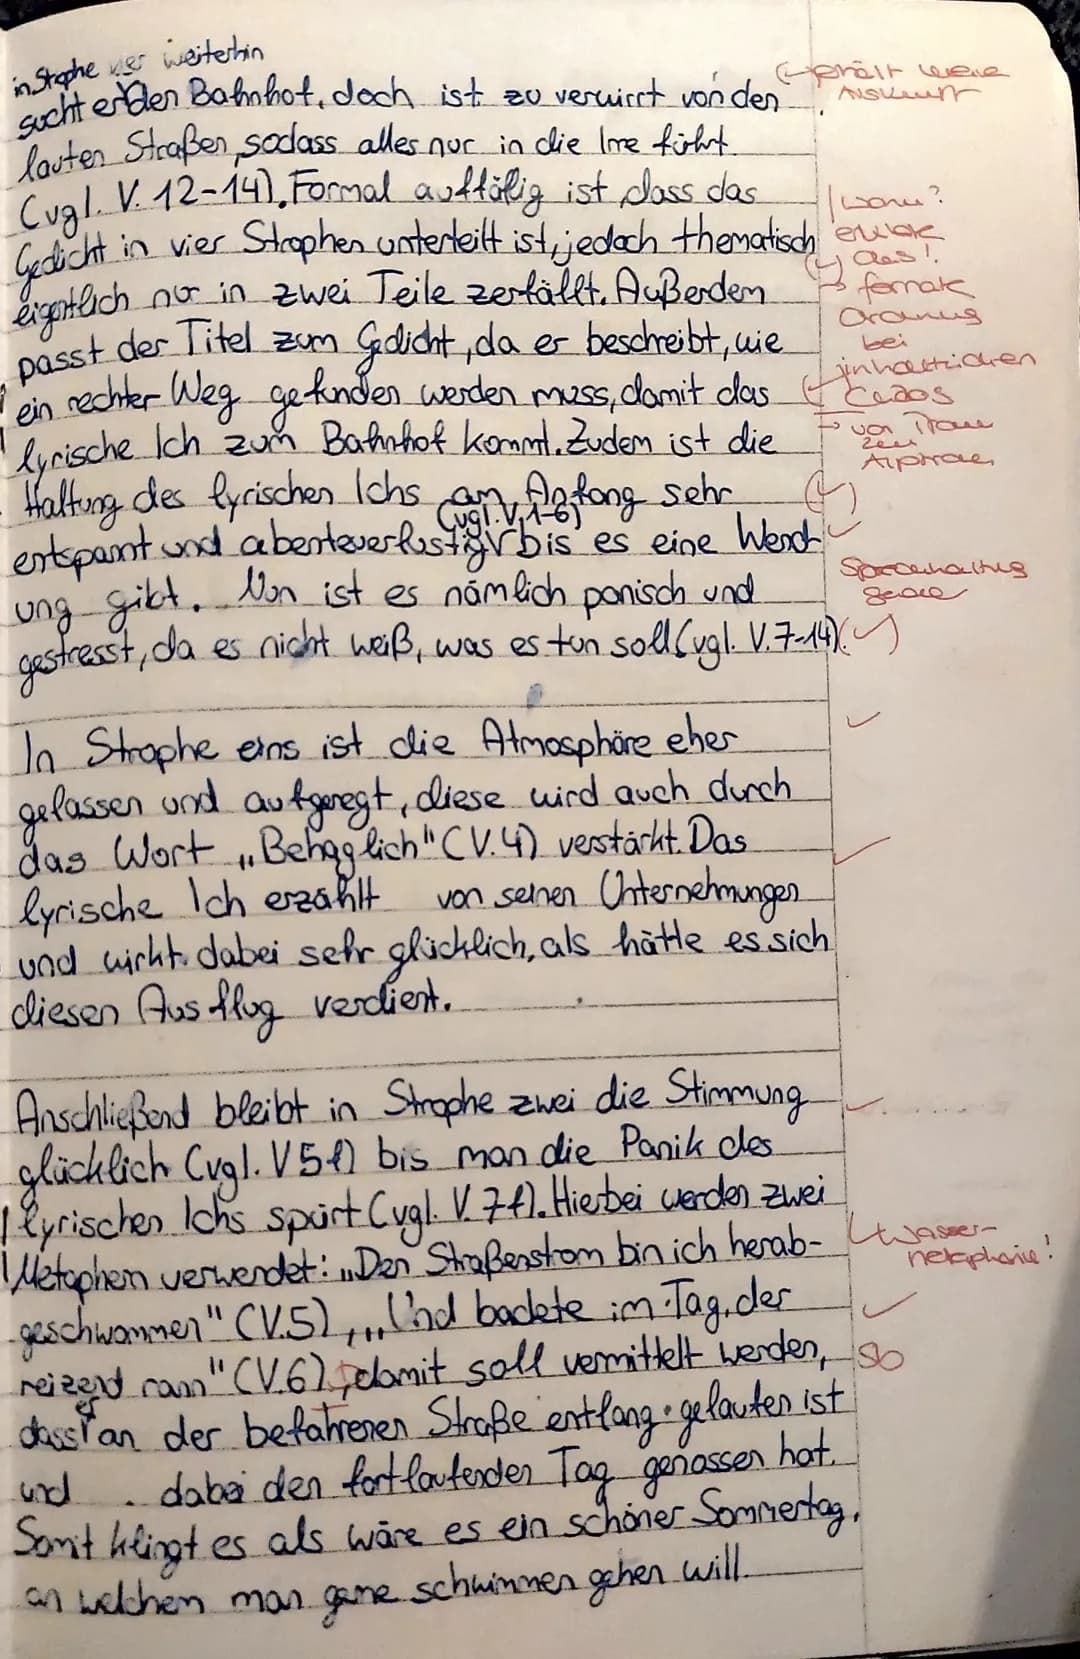 in Strophe vier weiterhin
sucht er den Bahnhof, doch ist zu verwirrt von den
lauten Straßen, sodass alles nur in die Irre führt
(vgl. V. 12-14). Formal auffällig ist, dass das
Gedicht in vier Strophen unterteilt ist, jedoch thematisch
eigentlich nur in zwei Teile zerfällt. Außerdem
passt der Titel zum Gedicht, da er beschreibt, wie
ein rechter Weg gefunden werden muss, damit das
lyrische Ich zum Bahnhof kommt. Zudem ist die
Haltung des lyrischen Ichs am Anfang sehr
(vgl. V. 1-6)
entspannt und abenteuerlustig bis es eine Wend
ung gibt. Nun ist es nämlich panisch und
gestresst, da es nicht weiß, was es tun soll (vgl. V. 7-14).
In Strophe eins ist die Atmosphäre eher
gelassen und aufgeregt, diese wird auch durch
das Wort „Behaglich" (V. 4) verstärkt. Das
lyrische Ich erzählt von seinen Unternehmungen
und wirkt dabei sehr glücklich, als hätte es sich
diesen Ausflug verdient.
Anschließend bleibt in Strophe zwei die Stimmung
glücklich (vgl. V 5f) bis man die Panik des
lyrischen Ichs spürt (vgl. V. 7f). Hierbei werden zwei
Metaphern verwendet: „Den Straßenstrom bin ich herab-
geschwommen" (V. 5), „Und badete im Tag, der
reizend rann" (V. 6), damit soll vermittelt werden,
dass er an der befahrenen Straße entlang gelaufen ist
und dabei den fortlaufenden Tag genossen hat.
Somit klingt es als wäre es ein schöner Sommertag,
an welchem man gerne schwimmen gehen will.
erhält keine
Auskunft
wann?
erkläre
das!
→ formale
Ordnung
bei
inhaltlichem
Chaos
→ von Traum
zum
Alptraum
Sprechhaltung
genau
Wasser-
metaphorik!
So